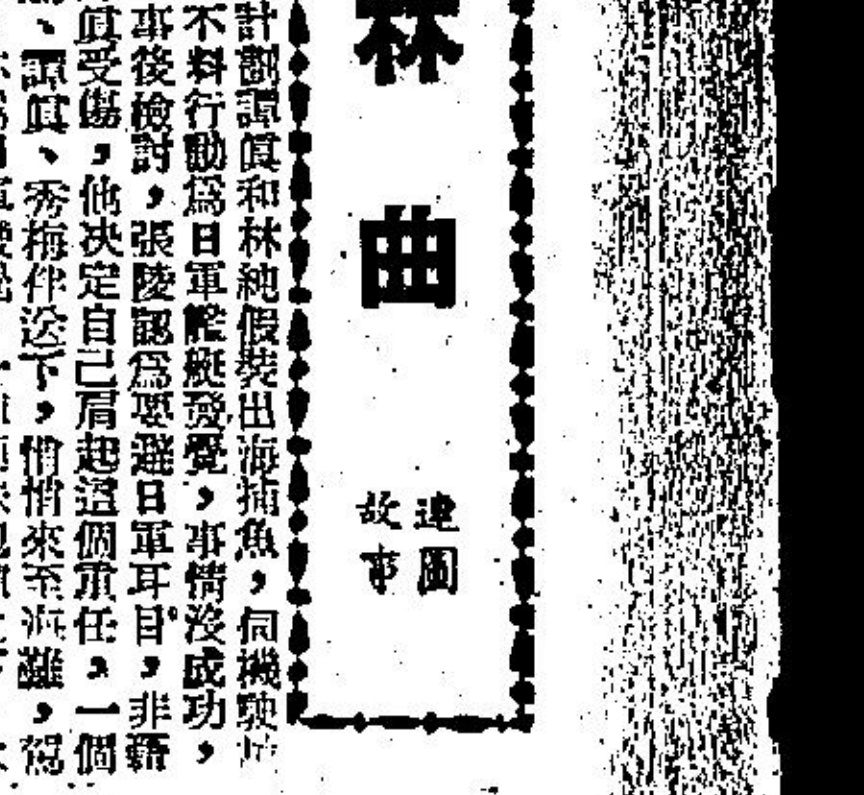 林曲
連圖
故事
計劃譚眞和林純假裝出海捕魚，伺機駛
不料行動爲日軍艦艇發覺，事情沒成功，
事後檢討，張陵認爲要避日軍耳目，非藉
眞受傷，他决定自己肩起這個重任，一個
、譚眞、秀梅伴送下，悄悄來至海灘，駕